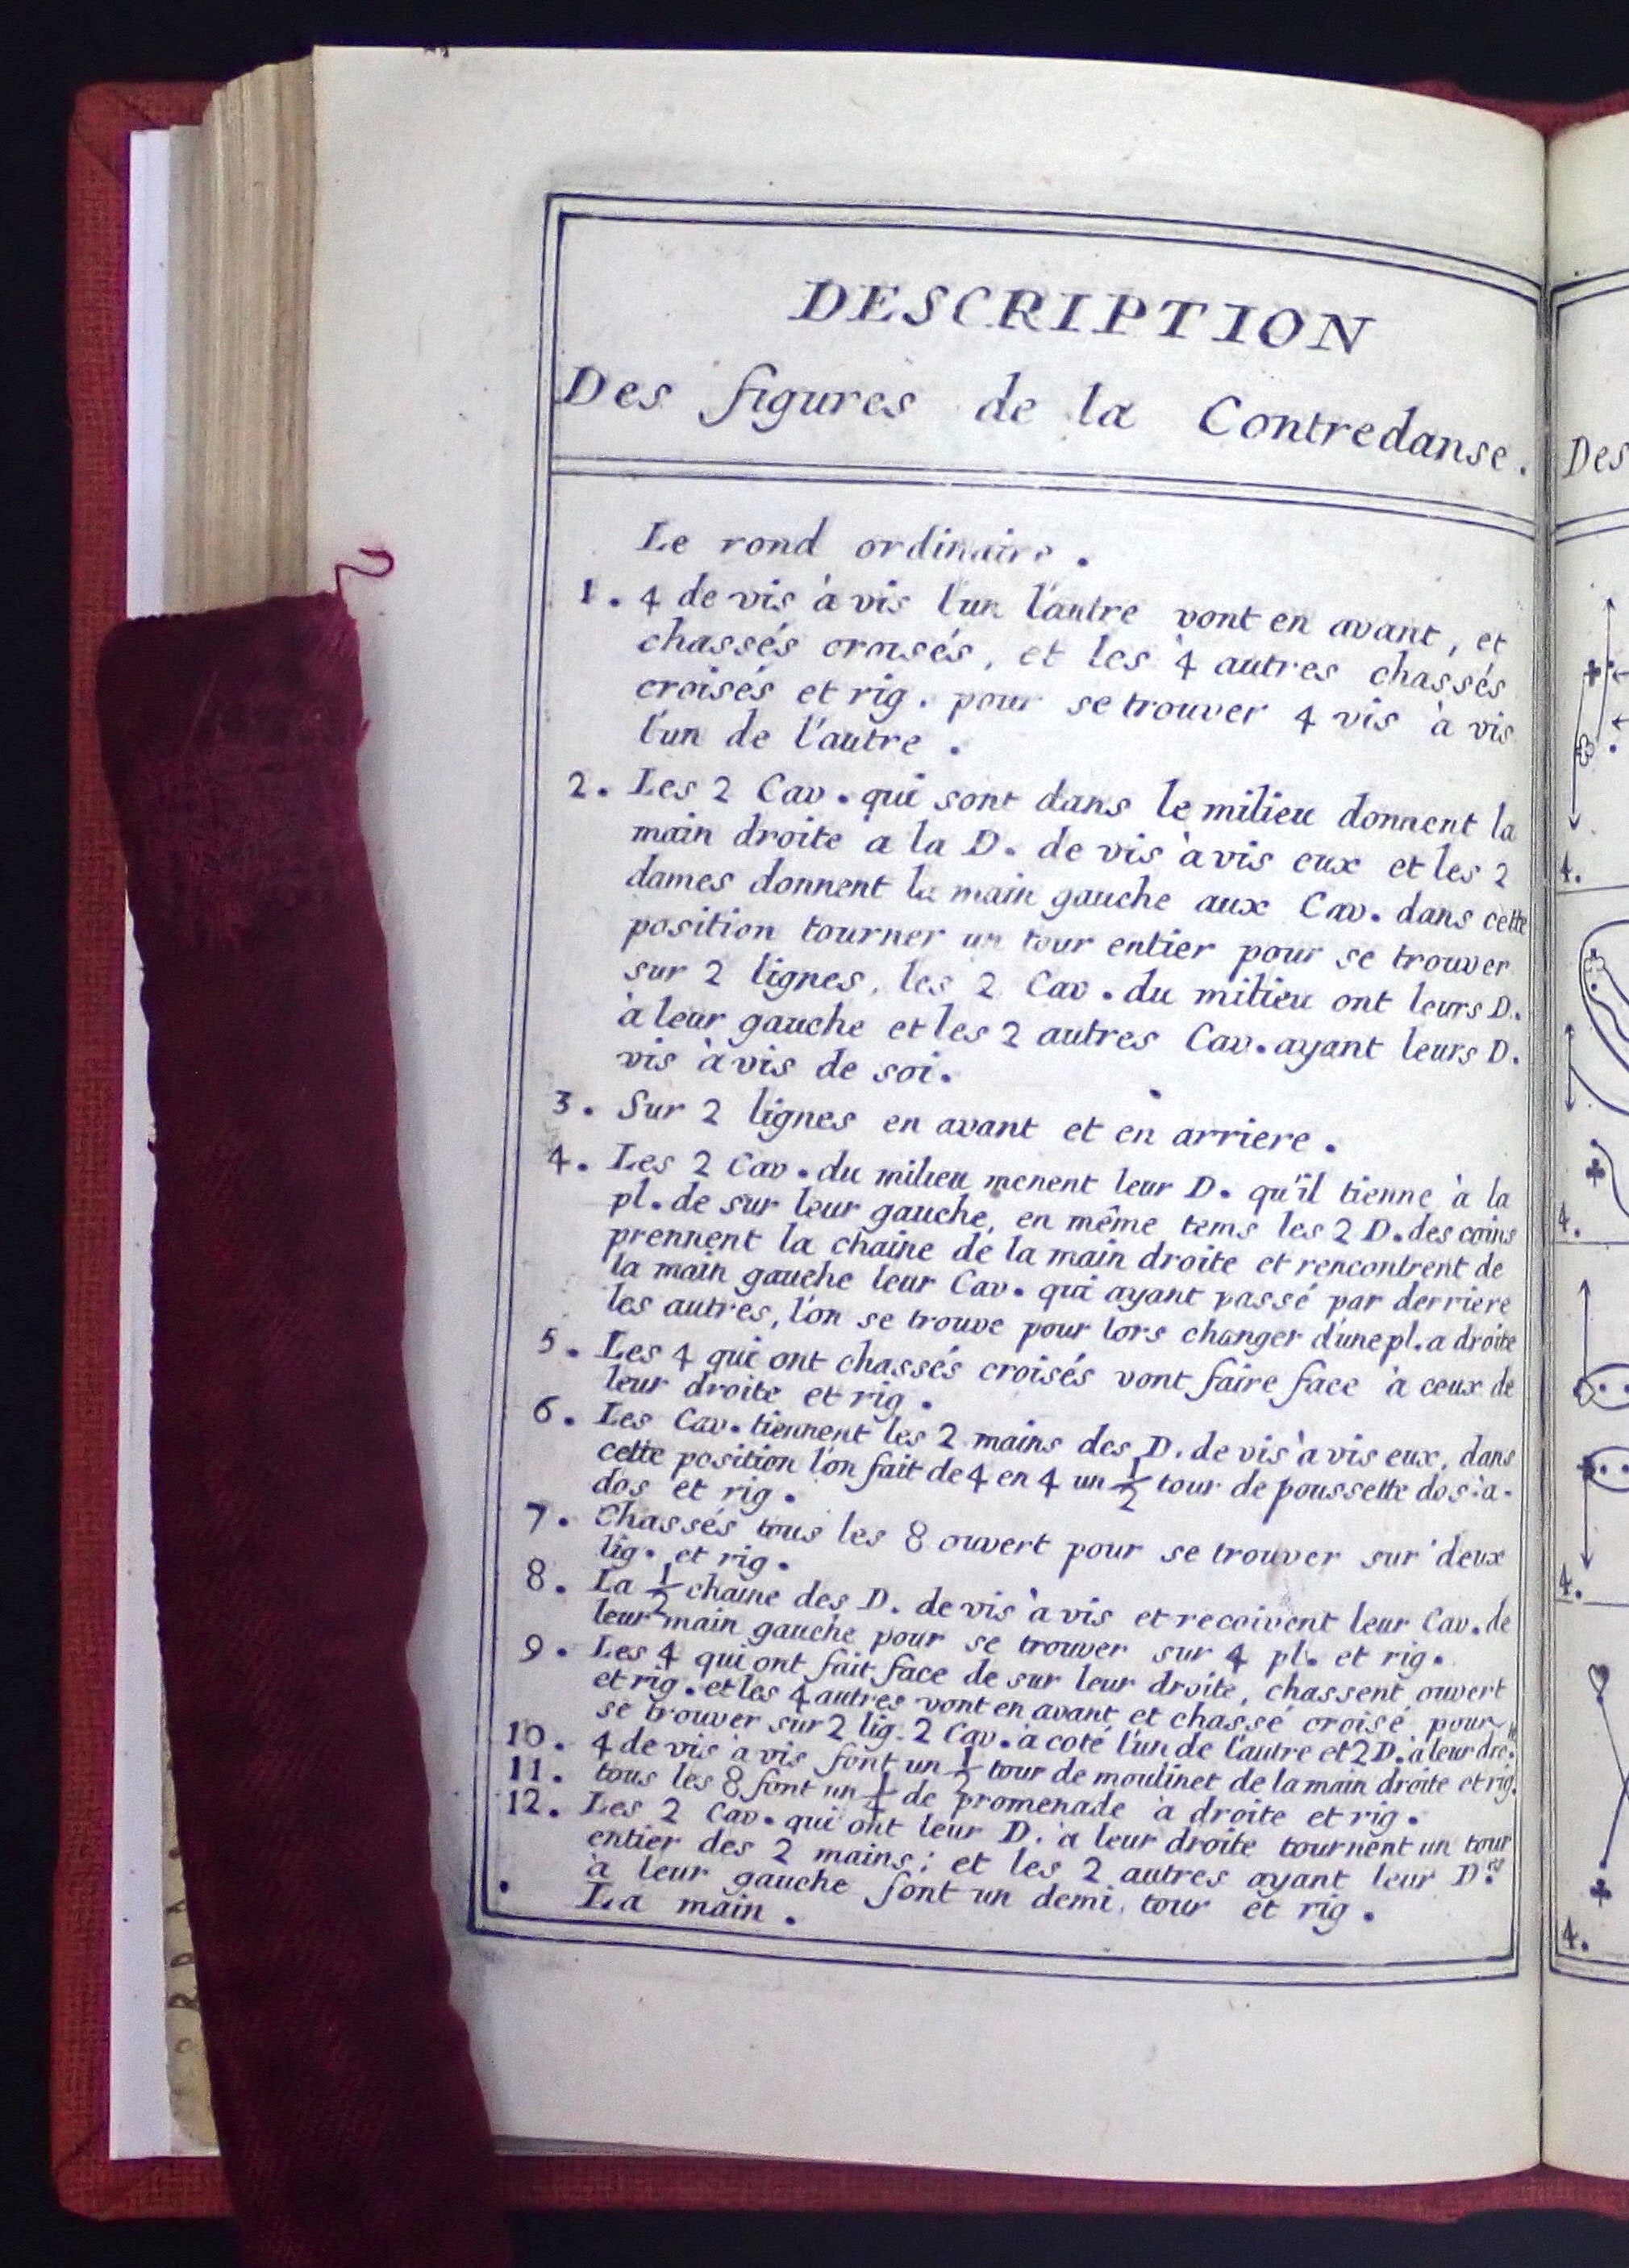 DESCRIPTION
Des figures de la Contredanse.
Le rond ordinaire.
1. 4 de vis à vis l'un l'autre vont en avant, et
chassés croisés, et les 4 autres chassés
croisés et rig. pour se trouver 4 vis à vis
l'un de l'autre.
2. Les 2 Cav. qui sont dans le milieu donnent la
main droite a la D. de vis à vis eux et les 2
dames donnent la main gauche aux Cav. dans cette
position tourner un tour entier pour se trouver
sur 2 lignes, les 2 Cav. du milieu ont leurs D.
à leur gauche et les 2 autres Cav. ayant leurs D.
vis à vis de soi.
3. Sur 2 lignes en avant et en arriere.
4. Les 2 Cav. du milieu menent leur D. qu'il tienne à la
pl. de sur leur gauche, en même tems les 2 D. des coins
prennent la chaine de la main droite et rencontrent de
la main gauche leur Cav. qui ayant passé par derriere
les autres, l'on se trouve pour lors changer d'une pl. a droite
5. Les 4 qui ont chassés croisés vont faire face à ceux de
leur droite et rig.
6. Les Cav. tiennent les 2 mains des D. de vis à vis eux, dans
cette position l'on fait de 4 en 4 un 1/2 tour de poussette dos-à-
dos et rig.
7. Chassés tous les 8 ouvert pour se trouver sur deux
lig. et rig.
8. La 1/2 chaine des D. de vis à vis et recoivent leur Cav. de
leur main gauche pour se trouver sur 4 pl. et rig.
9. Les 4 qui ont fait face de sur leur droite, chassent ouvert
et rig. et les 4 autres vont en avant et chassé croisé pour
se trouver sur 2 lig. 2 Cav. à coté l'un de l'autre et 2 D. à leur dre.
10. 4 de vis à vis font un 1/2 tour de moulinet de la main droite et rig.
11. tous les 8 font un 1/4 de promenade à droite et rig.
12. Les 2 Cav. qui ont leur D. à leur droite tournent un tour
entier des 2 mains; et les 2 autres ayant leur D.es
à leur gauche font un demi tour et rig.
La main.
Des
4.
4.
4.
4.